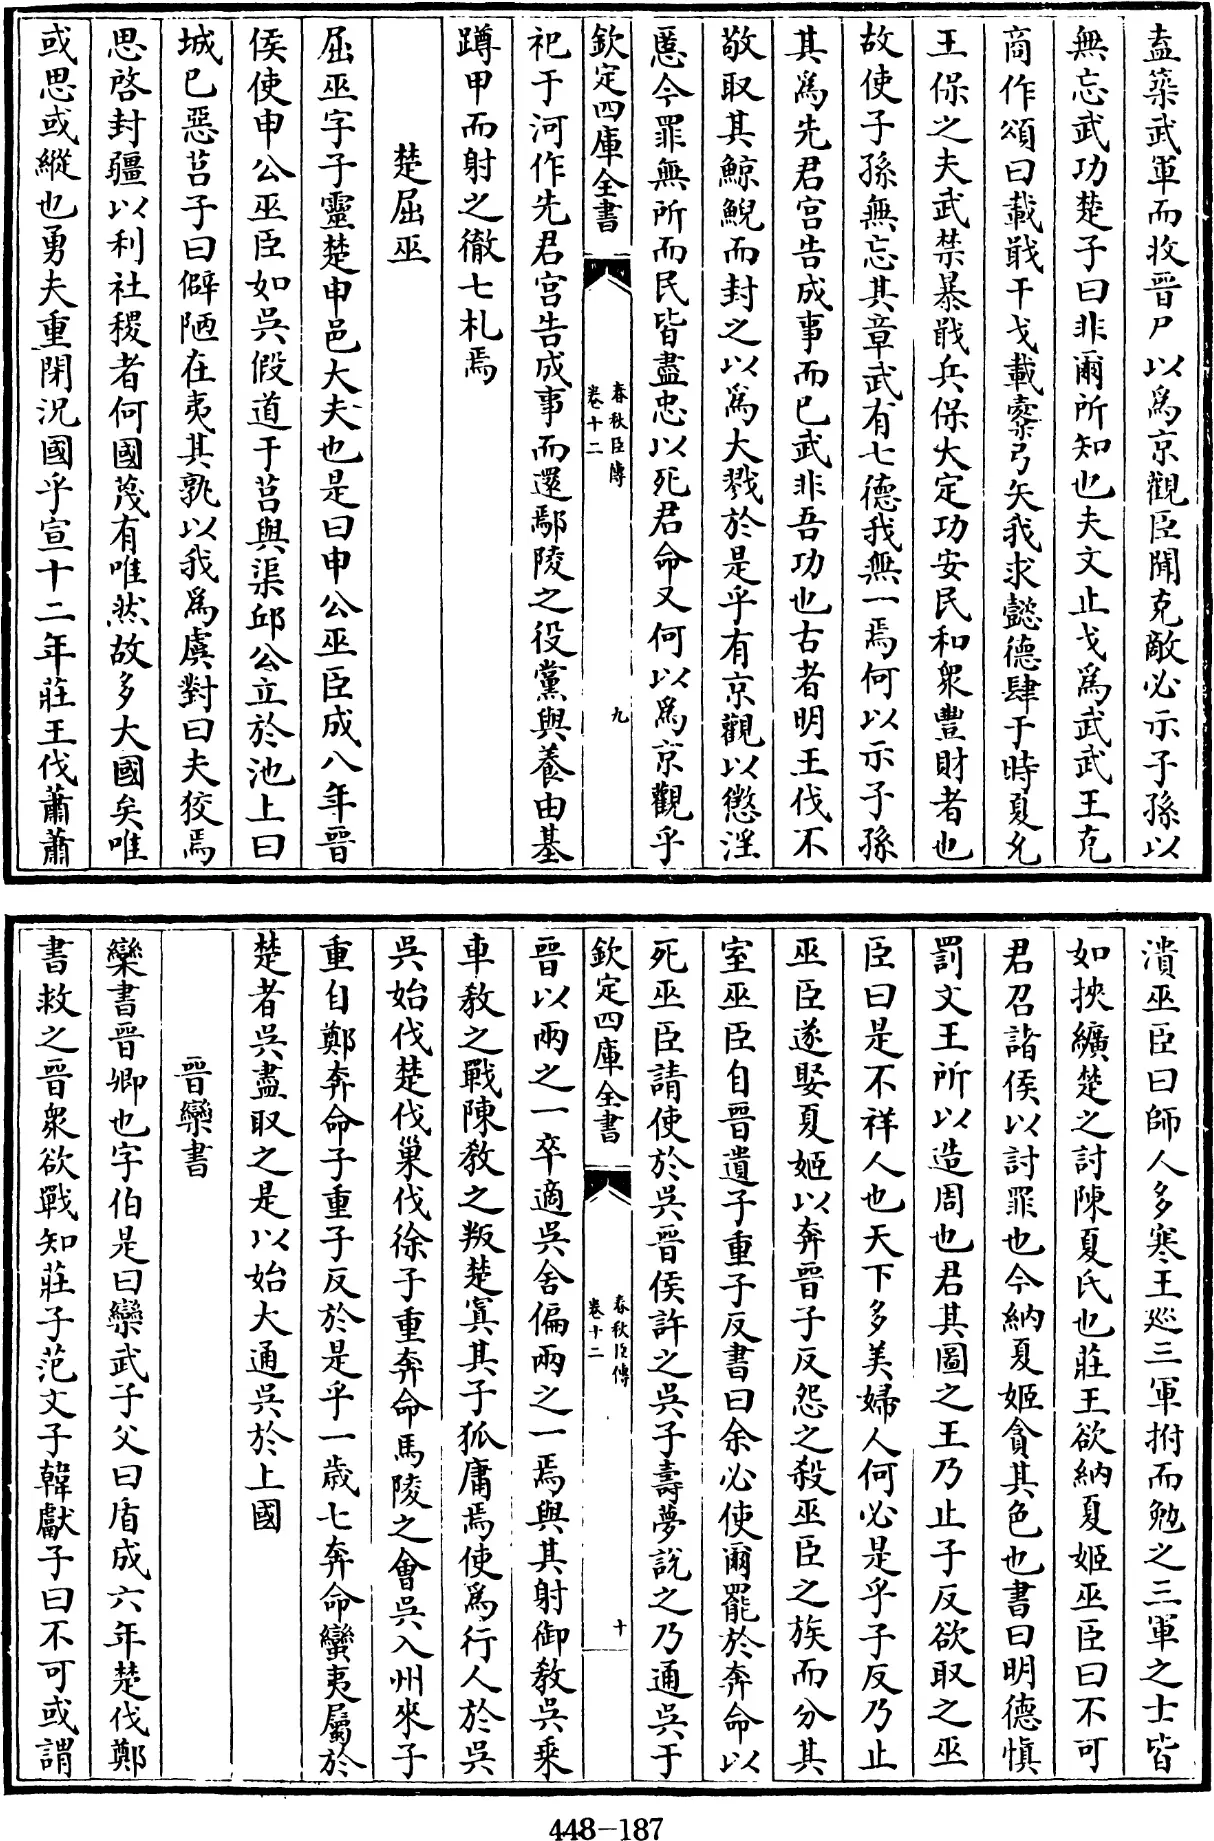 盍築武軍而收晉尸以爲京觀臣聞克敵必示子孫以
無忘武功楚子曰非爾所知也夫文止戈爲武武王克
商作頌曰載戢干戈載櫜弓矢我求懿德肆于時夏允
王保之夫武禁暴戢兵保大定功安民和衆豐財者也
故使子孫無忘其章武有七德我無一焉何以示子孫
其爲先君宫告成事而已武非吾功也古者明王伐不
敬取其鯨鯢而封之以爲大戮於是乎有京觀以懲淫
慝今罪無所而民皆盡忠以死君命又何以爲京觀乎
欽定四庫全書
春秋臣傳
卷十二
九
祀于河作先君宫告成事而還鄢陵之役黨與養由基
蹲甲而射之徹七札焉
楚屈巫
屈巫字子靈楚申邑大夫也是曰申公巫臣成八年晉
侯使申公巫臣如吳假道于莒與渠邱公立於池上曰
城已惡莒子曰僻陋在夷其孰以我爲虞對曰夫狡焉
思啓封疆以利社稷者何國蔑有唯然故多大國矣唯
或思或縱也勇夫重閉況國乎宣十二年莊王伐蕭蕭
潰巫臣曰師人多寒王廵三軍拊而勉之三軍之士皆
如挾纊楚之討陳夏氏也莊王欲納夏姬巫臣曰不可
君召諸侯以討罪也今納夏姬貪其色也書曰明德愼
罰文王所以造周也君其圖之王乃止子反欲取之巫
臣曰是不祥人也天下多美婦人何必是乎子反乃止
巫臣遂娶夏姬以奔晉子反怨之殺巫臣之族而分其
室巫臣自晉遺子重子反書曰余必使爾罷於奔命以
死巫臣請使於吳晉侯許之吳子壽夢說之乃通吳于
欽定四庫全書
春秋臣傳
卷十二
十
晉以兩之一卒適吳舍偏兩之一焉與其射御教吳乘
車教之戰陳教之叛楚寘其子狐庸焉使爲行人於吳
吳始伐楚伐巢伐徐子重奔命馬陵之會吳入州來子
重自鄭奔命子重子反於是乎一歳七奔命蠻夷屬於
楚者吳盡取之是以始大通吳於上國
晉欒書
欒書晉卿也字伯是曰欒武子父曰盾成六年楚伐鄭
書救之晉衆欲戰知莊子范文子韓獻子曰不可或謂
448-187